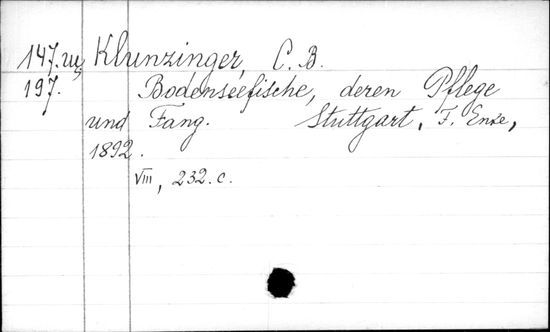 147.III, Klunzinger, C. B.
197. Bodenseefische, deren Pflege
und Fang. Stuttgart, F. Enke,
1892.
VIII, 232. c.